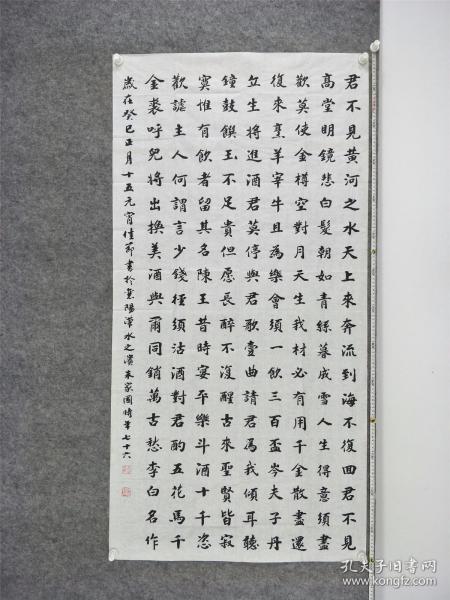 君不見黃河之水天上來奔流到海不復回君不見
高堂明鏡悲白髮朝如青絲暮成雪人生得意須盡
歡莫使金樽空對月天生我材必有用千金散盡還
復來烹羊宰牛且為樂會須一飲三百盃岑夫子丹
丘生將進酒君莫停與君歌壹曲請君為我傾耳聽
鐘鼓饌玉不足貴但愿長醉不復醒古來聖賢皆寂
寞惟有飲者留其名陳王昔時宴平樂斗酒十千恣
歡謔主人何謂言少錢徑須沽酒對君酌五花馬千
金裘呼兒將出換美酒與爾同銷萬古愁李白名作
歲在癸巳正月十五元宵佳節書於陽水之濱家國時年七十六
孔夫子旧书网
www.kongfz.com